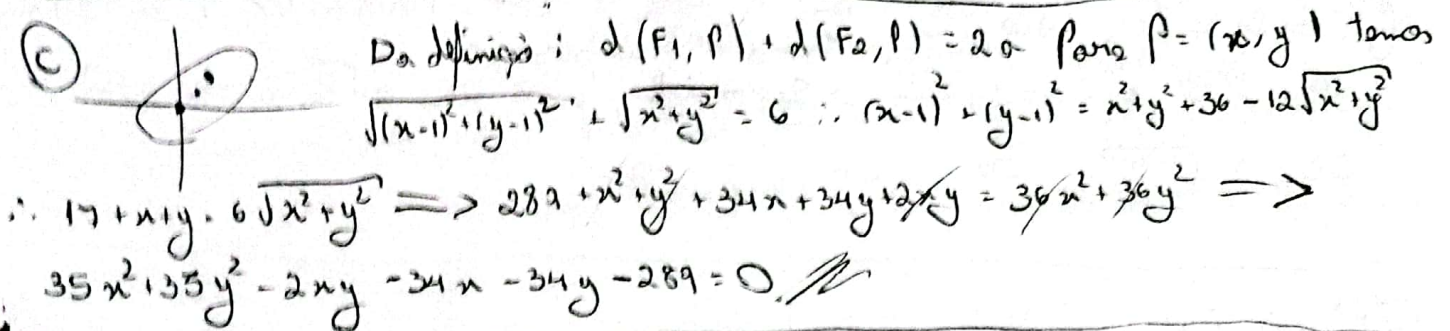 (C) Da definição: d(F₁, P) + d(F₂, P) = 2a Para P = (x, y) temos
√((x-1)² + (y-1)²) + √(x²+y²) = 6 ∴ (x-1)² + (y-1)² = x²+y²+36 - 12√(x²+y²)
∴ 17+x+y = 6√(x²+y²) => 289 + x²+y² + 34x + 34y + 2xy = 36x² + 36y² =>
35x² + 35y² - 2xy - 34x - 34y - 289 = 0.